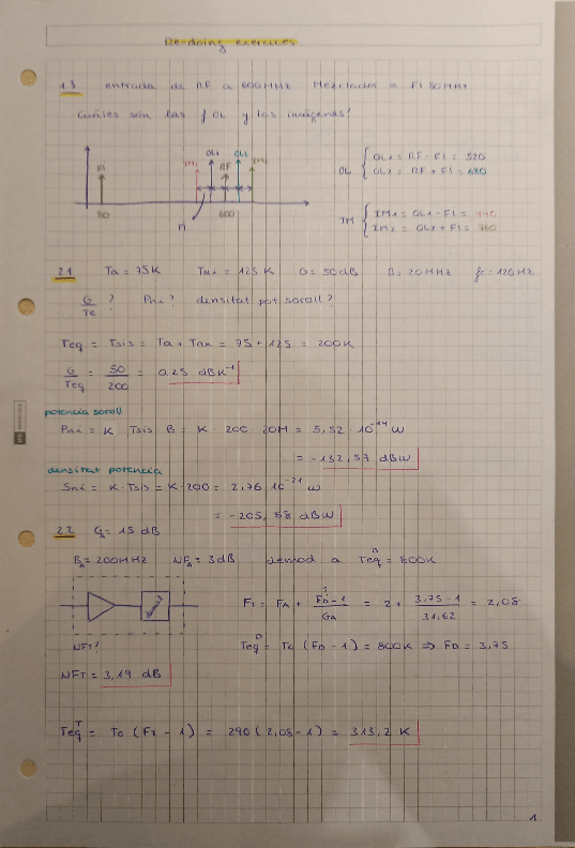 Re-doing exercices
1.3 entrada de RF a 600MHz Mezclador a FI 80MHz
Cuáles son las f OL y las imágenes?
FI IM1 OL1 RF OL2 IM2
80 600
FI
OL { OL1 = RF - FI = 520
OL2 = RF + FI = 680
IM { IM1 = OL1 - FI = 440
IM2 = OL2 + FI = 760
2.1 Ta = 75K = 125 K G = 50dB B = 20MHz fc = 12GHz
G/Te ? Pni? densitat pot soroll?
Teq = Tsis = Ta + Trx = 75 + 125 = 200K
G/Teq = 50/200 = 0,25 dBK⁻¹
potencia soroll
Pni = K Tsis B = K · 200 · 20M = 5,52 · 10⁻¹⁴ W
= -132,57 dBW
densitat potencia
Sni = K · Tsis = K · 200 = 2,76 10⁻²¹ W
= -205,58 dBW
2.2 GA = 15 dB
BA = 200MHz NFA = 3dB demod a TeqD = 800K
demod
FT = FA + (FD - 1)/GA = 2 + (3,75 - 1)/31,62 = 2,08
NFT?
TeqD = To (FD - 1) = 800K ⇒ FD = 3,75
NFT = 3,19 dB
TeqT = To (FT - 1) = 290 (2,08 - 1) = 313,2 K
1